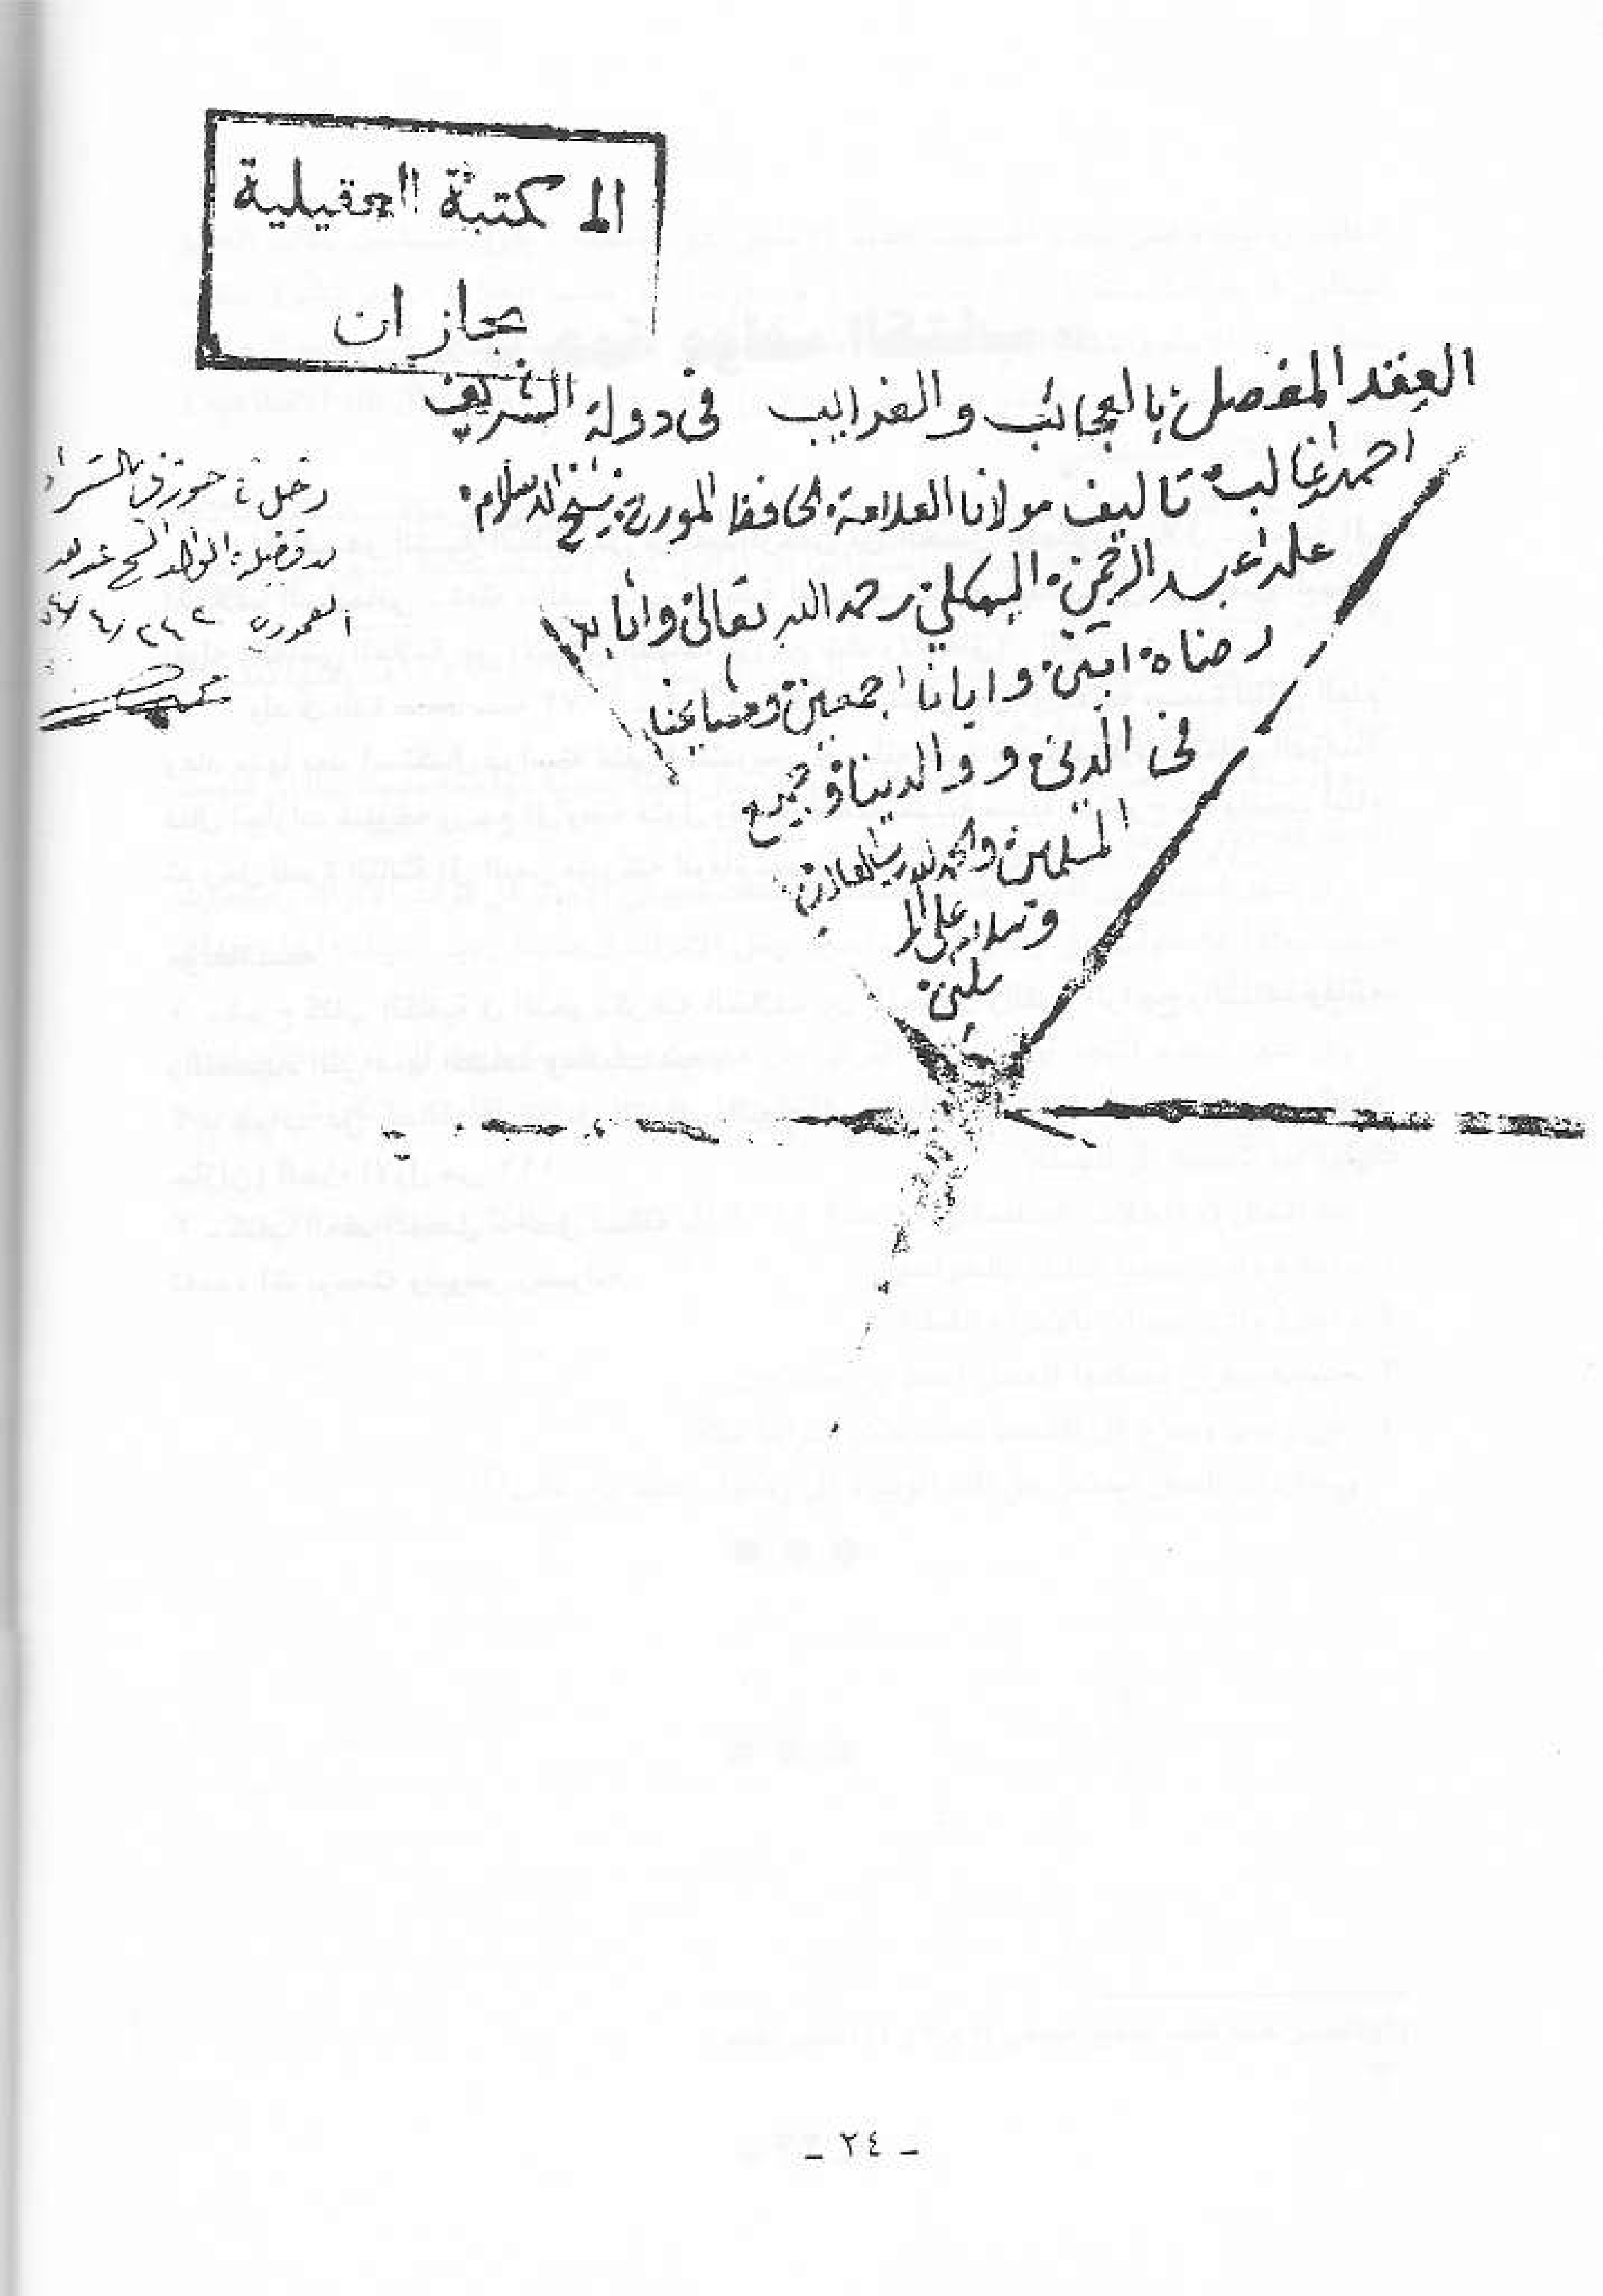 المكتبة العقيلية
بجازان
العقد المفصل بالعجائب والغرايب في دولة الشريف
احمد غالب تاليف مولانا العلامة الحافظ المورخ شيخ الاسلام
عبد الرحمن البهكلي رحمه الله تعالى وأثابه
رضاه امين وايانا اجمعين ومشايخنا
في الدين ووالدينا وجميع
المسلمين والحمد لله رب العالمين
وسلام على المر
سلين
دخل في حوزتي بالشراء
فضيلة الوالد الشيخ
العمودي
- ٢٤ -